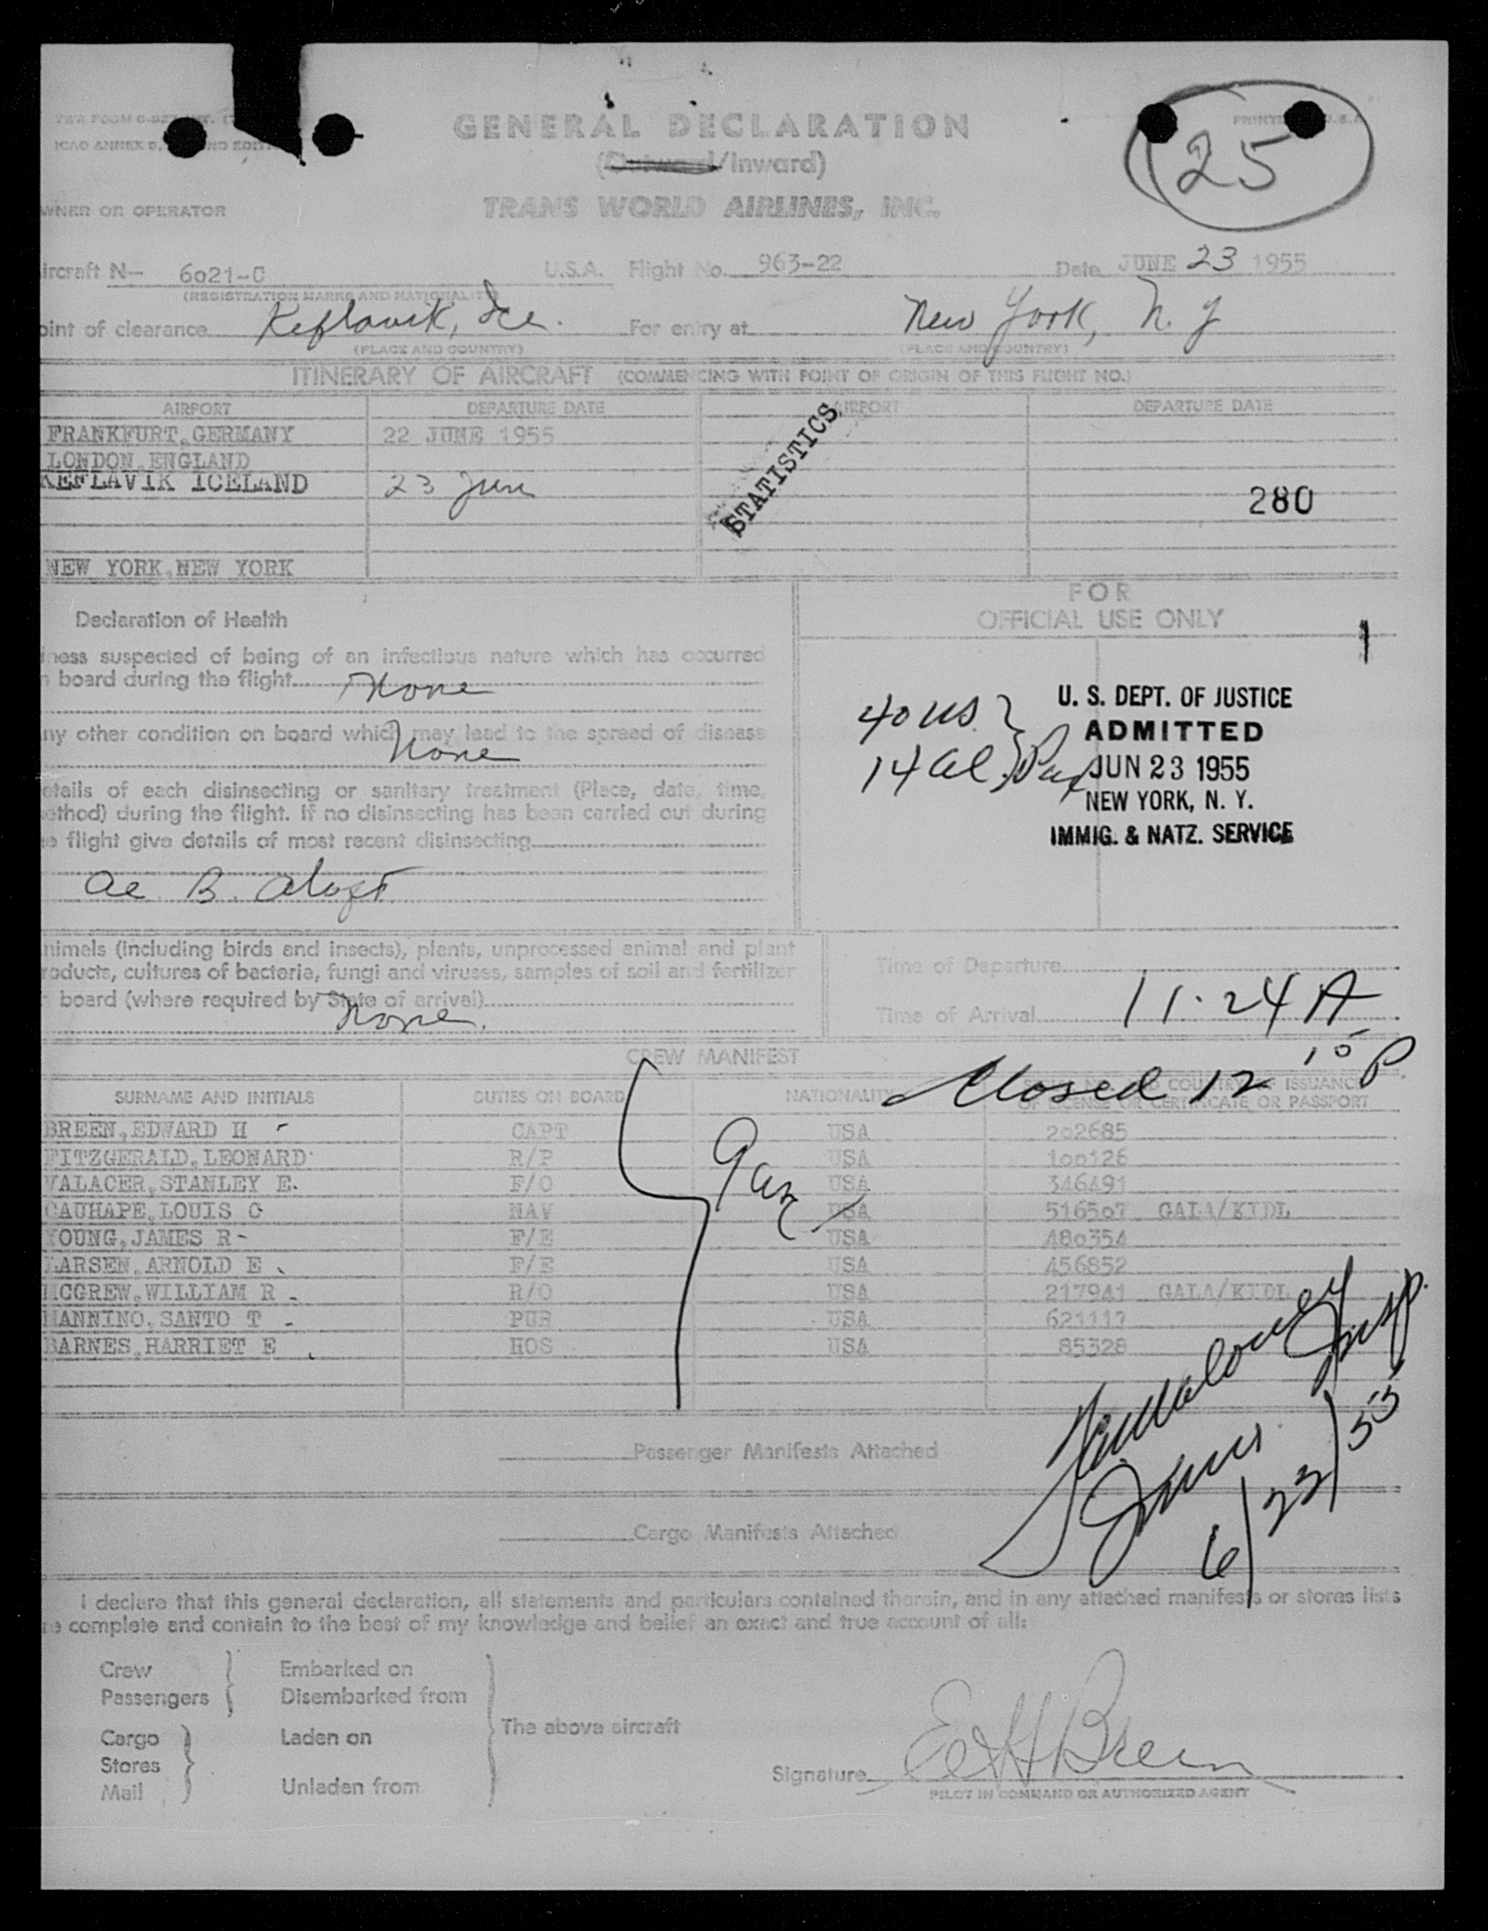 GENERAL DECLARATION
25
(Outward/Inward)
TRANS WORLD AIRLINES, INC.
WNER OR OPERATOR
ircraft N- 6021-C U.S.A. Flight No. 963-22 Date JUNE 23 1955
(REGISTRATION MARKS AND NATIONALITY)
oint of clearance Keflavik, Ice. For entry at New York, N.Y
(PLACE AND COUNTRY) (PLACE AND COUNTRY)
ITINERARY OF AIRCRAFT (COMMENCING WITH POINT OF ORIGIN OF THIS FLIGHT NO.)
AIRPORT DEPARTURE DATE AIRPORT DEPARTURE DATE
FRANKFURT, GERMANY 22 JUNE 1955
LONDON, ENGLAND
KEFLAVIK ICELAND 23 Jun
STATISTICS
280
NEW YORK, NEW YORK
FOR
OFFICIAL USE ONLY
Declaration of Health
ness suspected of being of an infectious nature which has occurred
n board during the flight None
ny other condition on board which may lead to the spread of disease
None
etails of each disinsecting or sanitary treatment (Place, date, time,
ethod) during the flight. If no disinsecting has been carried out during
e flight give details of most recent disinsecting
B. Aloft
40 US
14 al. Pax
1
U. S. DEPT. OF JUSTICE
ADMITTED
JUN 23 1955
NEW YORK, N. Y.
IMMIG. & NATZ. SERVICE
nimals (including birds and insects), plants, unprocessed animal and plant
roducts, cultures of bacteria, fungi and viruses, samples of soil and fertilizer
n board (where required by State of arrival)
None.
Time of Departure
Time of Arrival 11:24 A
Closed 12 15 P
CREW MANIFEST
SURNAME AND INITIALS DUTIES ON BOARD NATIONALITY
OF LICENSE OR CERTIFICATE OR PASSPORT
BREEN, EDWARD H CAPT USA 202685
FITZGERALD, LEONARD R/P USA 100126
VALACER, STANLEY E. F/O USA 346491
CAUHAPE, LOUIS G NAV USA 516507 GALA/KIDL
YOUNG, JAMES R F/E USA 480354
LARSEN, ARNOLD E F/E USA 456852
MCGREW, WILLIAM R R/O USA 217941 GALA/KIDL
MANNINO, SANTO T PUR USA 621117
BARNES, HARRIET E HOS USA 85328
Insp.
6/23/55
Passenger Manifests Attached
Cargo Manifests Attached
I declare that this general declaration, all statements and particulars contained therein, and in any attached manifests or stores lists
re complete and contain to the best of my knowledge and belief an exact and true account of all:
Crew Embarked on
Passengers Disembarked from
The above aircraft
Cargo Laden on
Stores
Mail Unladen from
Signature E H Breen
PILOT IN COMMAND OR AUTHORIZED AGENT